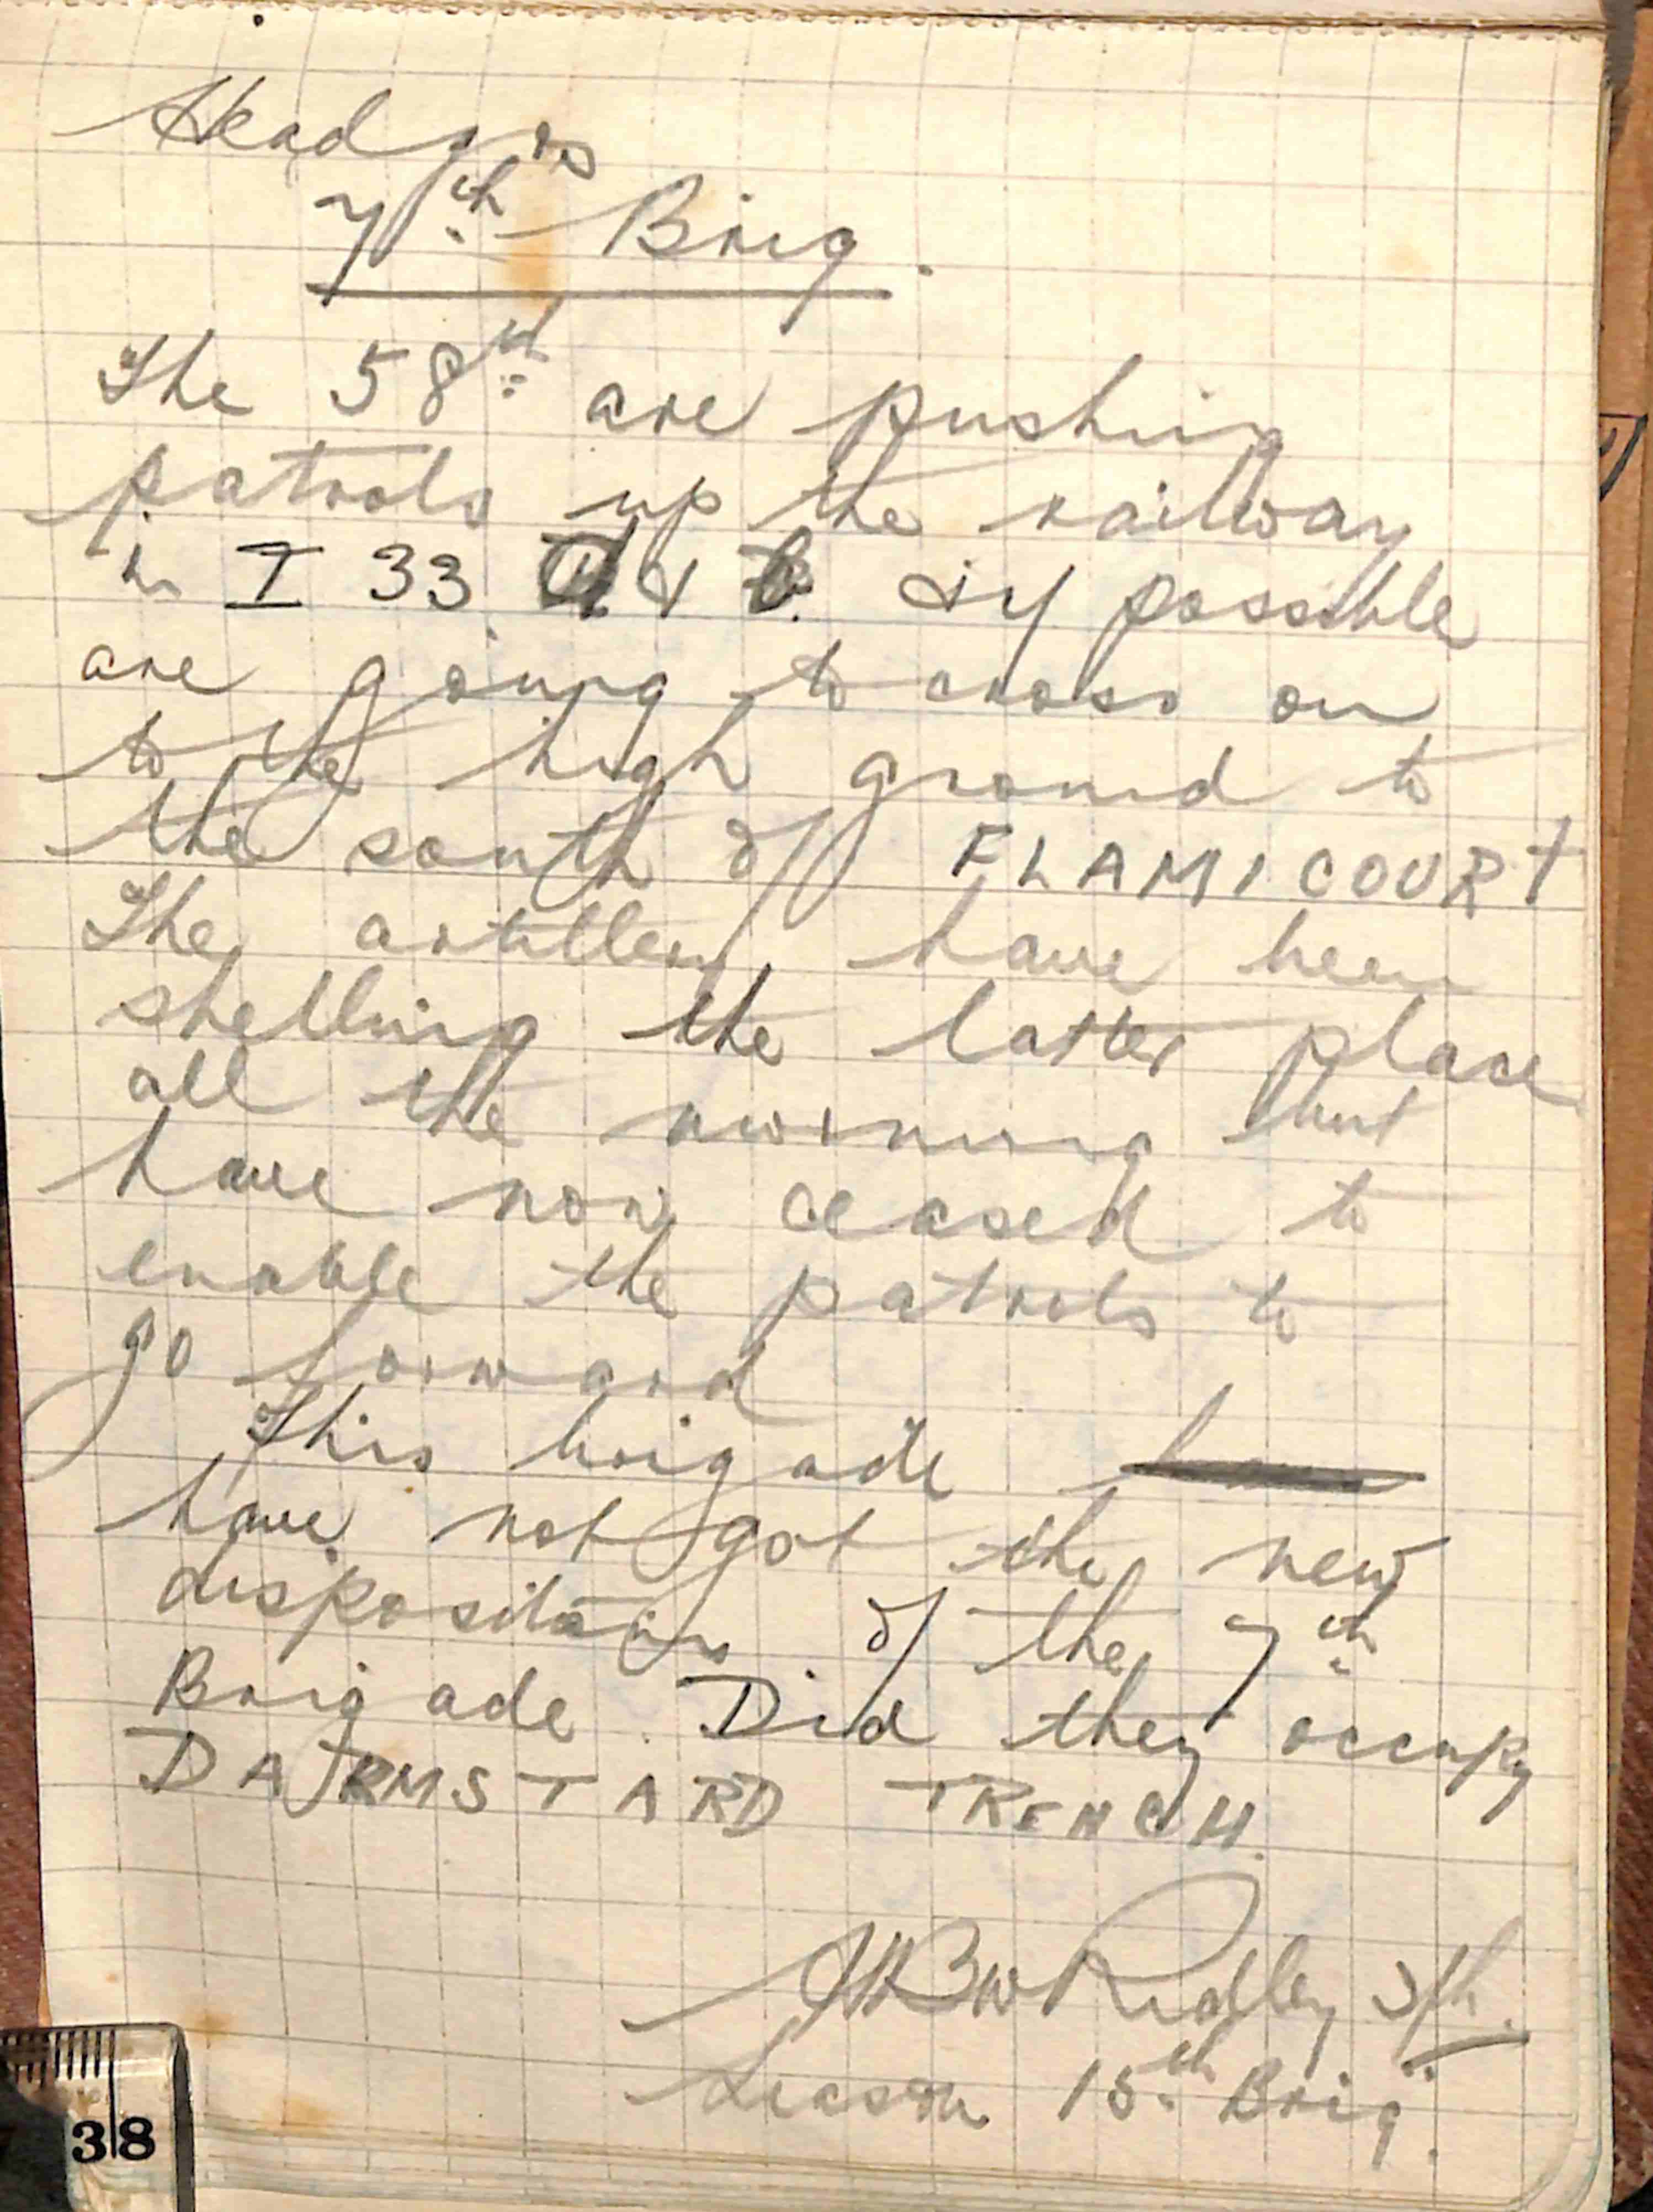 Head qrs
7th Brig.
The 58th are pushing
patrols up the railway
in I 33 & b. & if possible
are going to cross on
to the high ground to
the south of FLAMICOURT
The artillery have been
shelling the latter place
all the morning but
have now ceased to
enable the patrols to
go forward
This brigade have
have not got the new
dispositions of the 7th
Brigade. Did they occupy
DARMSTARD TRENCH.
Ridley Lt.
Liason 15th Brig.
38